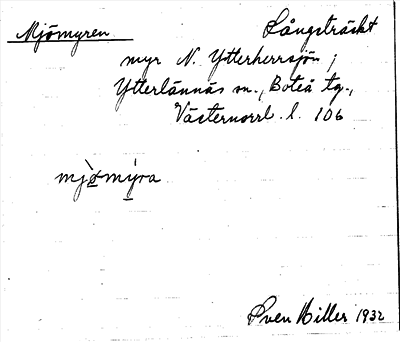 Mjömyren Långsträskt
myr N. Ytterherrsjön;
Ytterlännäs sn., Boteå tg.,
Västernorrl. l. 106
mjømýra
Sven Hiller 1932